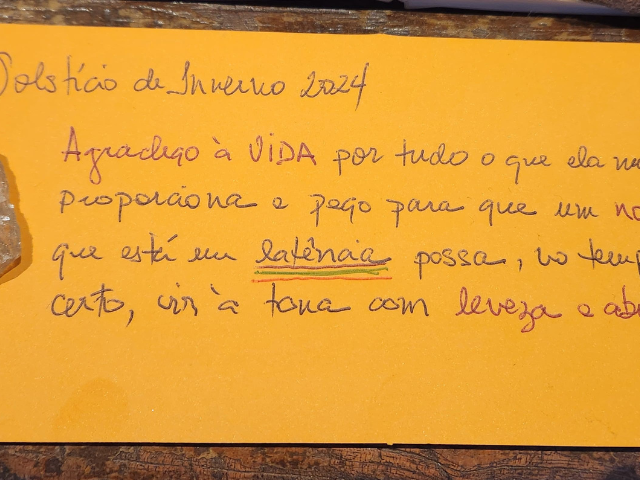 Solstício de Inverno 2024
Agradeço à VIDA por tudo o que ela
proporciona e peço para que um
que está em latência possa, no
certo, vir à tona com leveza e